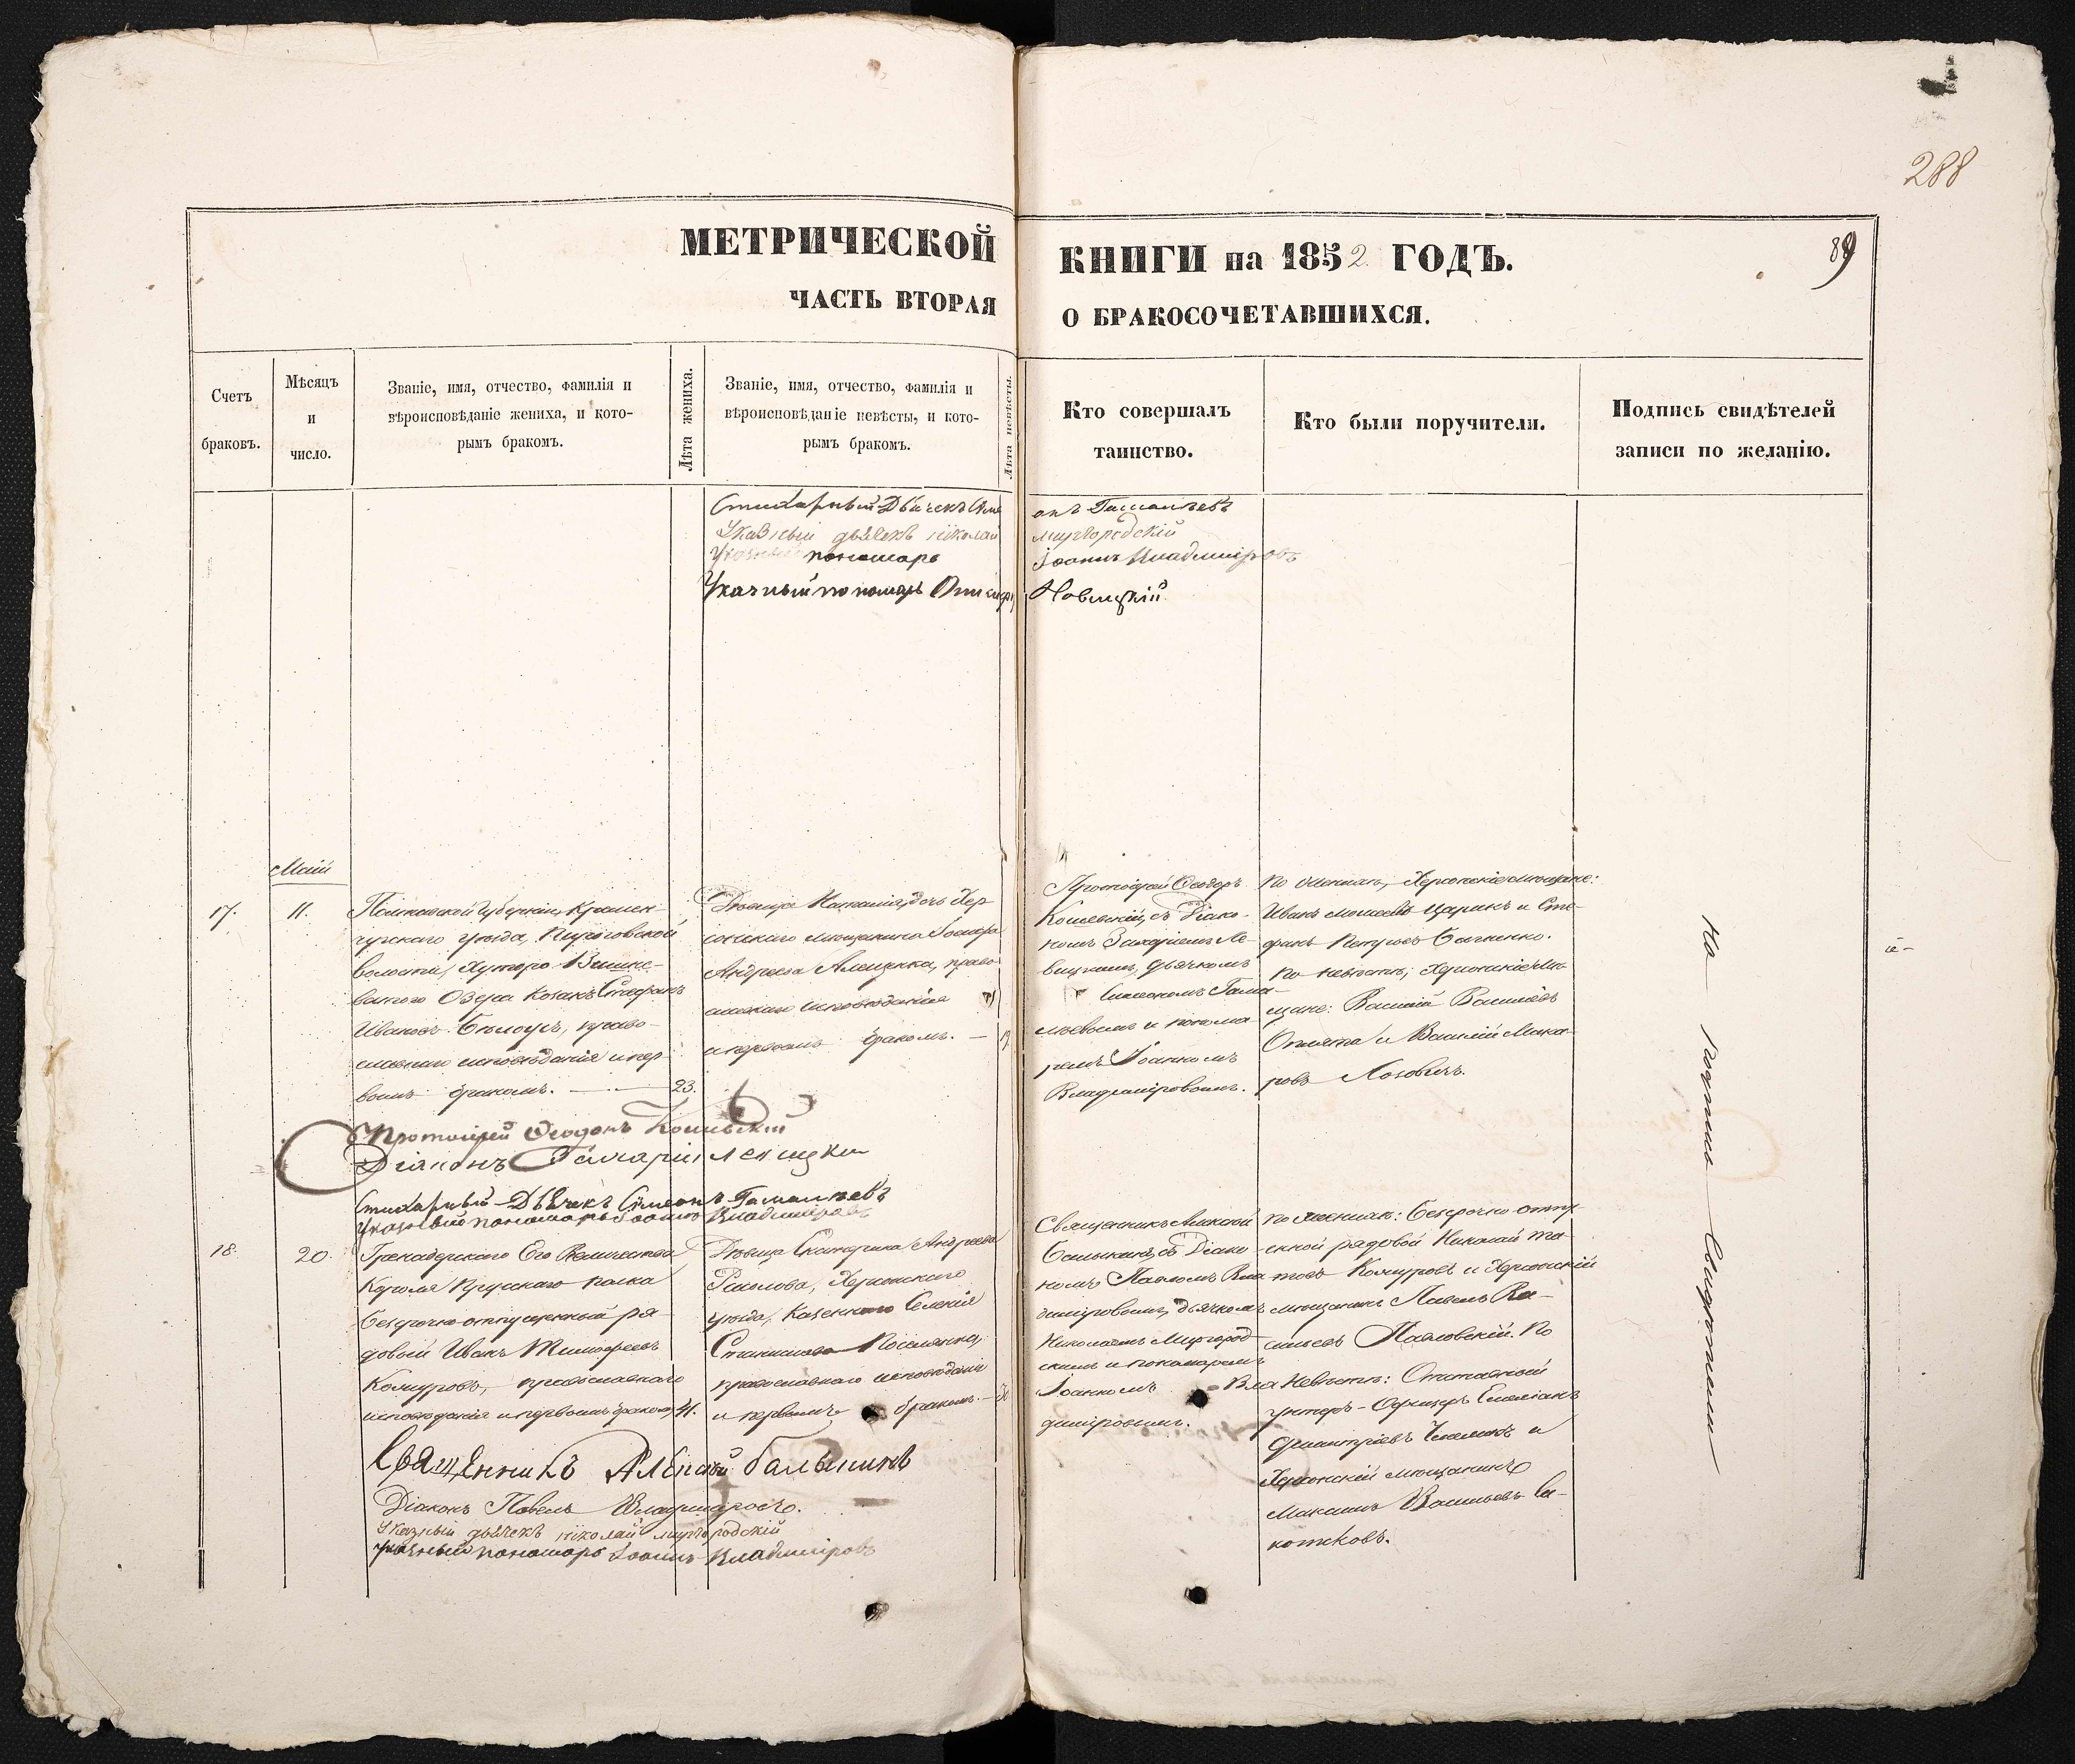 288
МЕТРИЧЕСКОЙ
КНИГИ на 1852. ГОДЪ.
89
ЧАСТЬ ВТОРАЯ
О БРАКОСОЧЕТАВШИХСЯ.
Счетъ
браковъ.
Мѣсяцъ
и
число.
Званіе, имя, отчество, фамилія и
вѣроисповѣданіе жениха, и кото-
рымъ бракомъ.
Лѣта жениха.
Званіе, имя, отчество, фамилія и
вѣроисповѣданіе невѣсты, и кото-
рымъ бракомъ.
Лѣта невѣсты.
Кто совершалъ
таинство.
Кто были поручители.
Подпись свидѣтелей
записи по желанію.
Стихарный Дьячекъ Симе
онъ Гамалѣевъ
Указный дьячекъ Николай
Миргородскій
Указный пономарь
Іоаннъ Владиміровъ
Указный пономарь
Новицкій
Маій
17.
11.
губерніи, Кременчугскаго уѣзда,
волости, Хутора Вишне-
ваго Озера Козакъ Стефанъ
Ивановъ Бѣлоусъ, право-
славнаго исповѣданія и пер-
вымъ бракомъ.
23.
Дѣвица Наталія, дочь Хер-
сонскаго мѣщанина Іосифа
Андреева Алещенка, право-
славнаго исповѣданія
и первымъ бракомъ.
Протоіерей Ѳеодоръ
съ Діако-
номъ Захаріемъ Ле-
вицкимъ, дьячкомъ
Симеономъ Гама-
лѣевымъ и понома-
ремъ Іоанномъ
Владиміровымъ.
По женихѣ, Херсонскіе мѣщане:
Иванъ Моисеевъ Царикъ и Сте-
фанъ Петровъ
По невѣстѣ; Херсонскіе мѣ-
щане: Василій Васильевъ
и Василій Мака-
ровъ Лозовичъ.
Протоіерей Ѳеодоръ
Діаконъ Захарій Левицкій
Стихарный Дьячекъ Симеонъ Гамалѣевъ
Указный пономарь Іоаннъ Владиміровъ
18.
20.
Гренадерскаго Его Величества
Короля Прусскаго полка
безсрочно-отпускный ря-
довой Иванъ Тимофеевъ
Комуровъ, православнаго
исповѣданія и первымъ бракомъ,
41.
Дѣвица Екатерина Андреева
Херсонскаго
уѣзда, Казеннаго Селенія
Станислава Поселянка,
православнаго исповѣданія
и первымъ бракомъ.
Священникъ Алексій
Балыкинъ, съ Діако-
номъ Павломъ Вла-
диміровымъ, дьячкомъ
Николаемъ Миргород-
скимъ и пономаремъ
Іоанномъ Вла
диміровымъ.
По женихѣ: Безсрочно отпу-
скной рядовой Николай
Комуровъ и Херсонскій
мѣщанинъ Павелъ Ва-
сильевъ Павловскій. По
Невѣстѣ: Отставной
унтеръ-Офицеръ Емеліанъ
Димитріевъ и
Херсонскій мѣщанинъ
Максимъ Васильевъ Са-
котковъ.
Священникъ Алексій Балыкинъ
Діаконъ Павелъ Владиміровъ.
Указный дьячекъ Николай Миргородскій
Указный пономарь Іоаннъ Владиміровъ